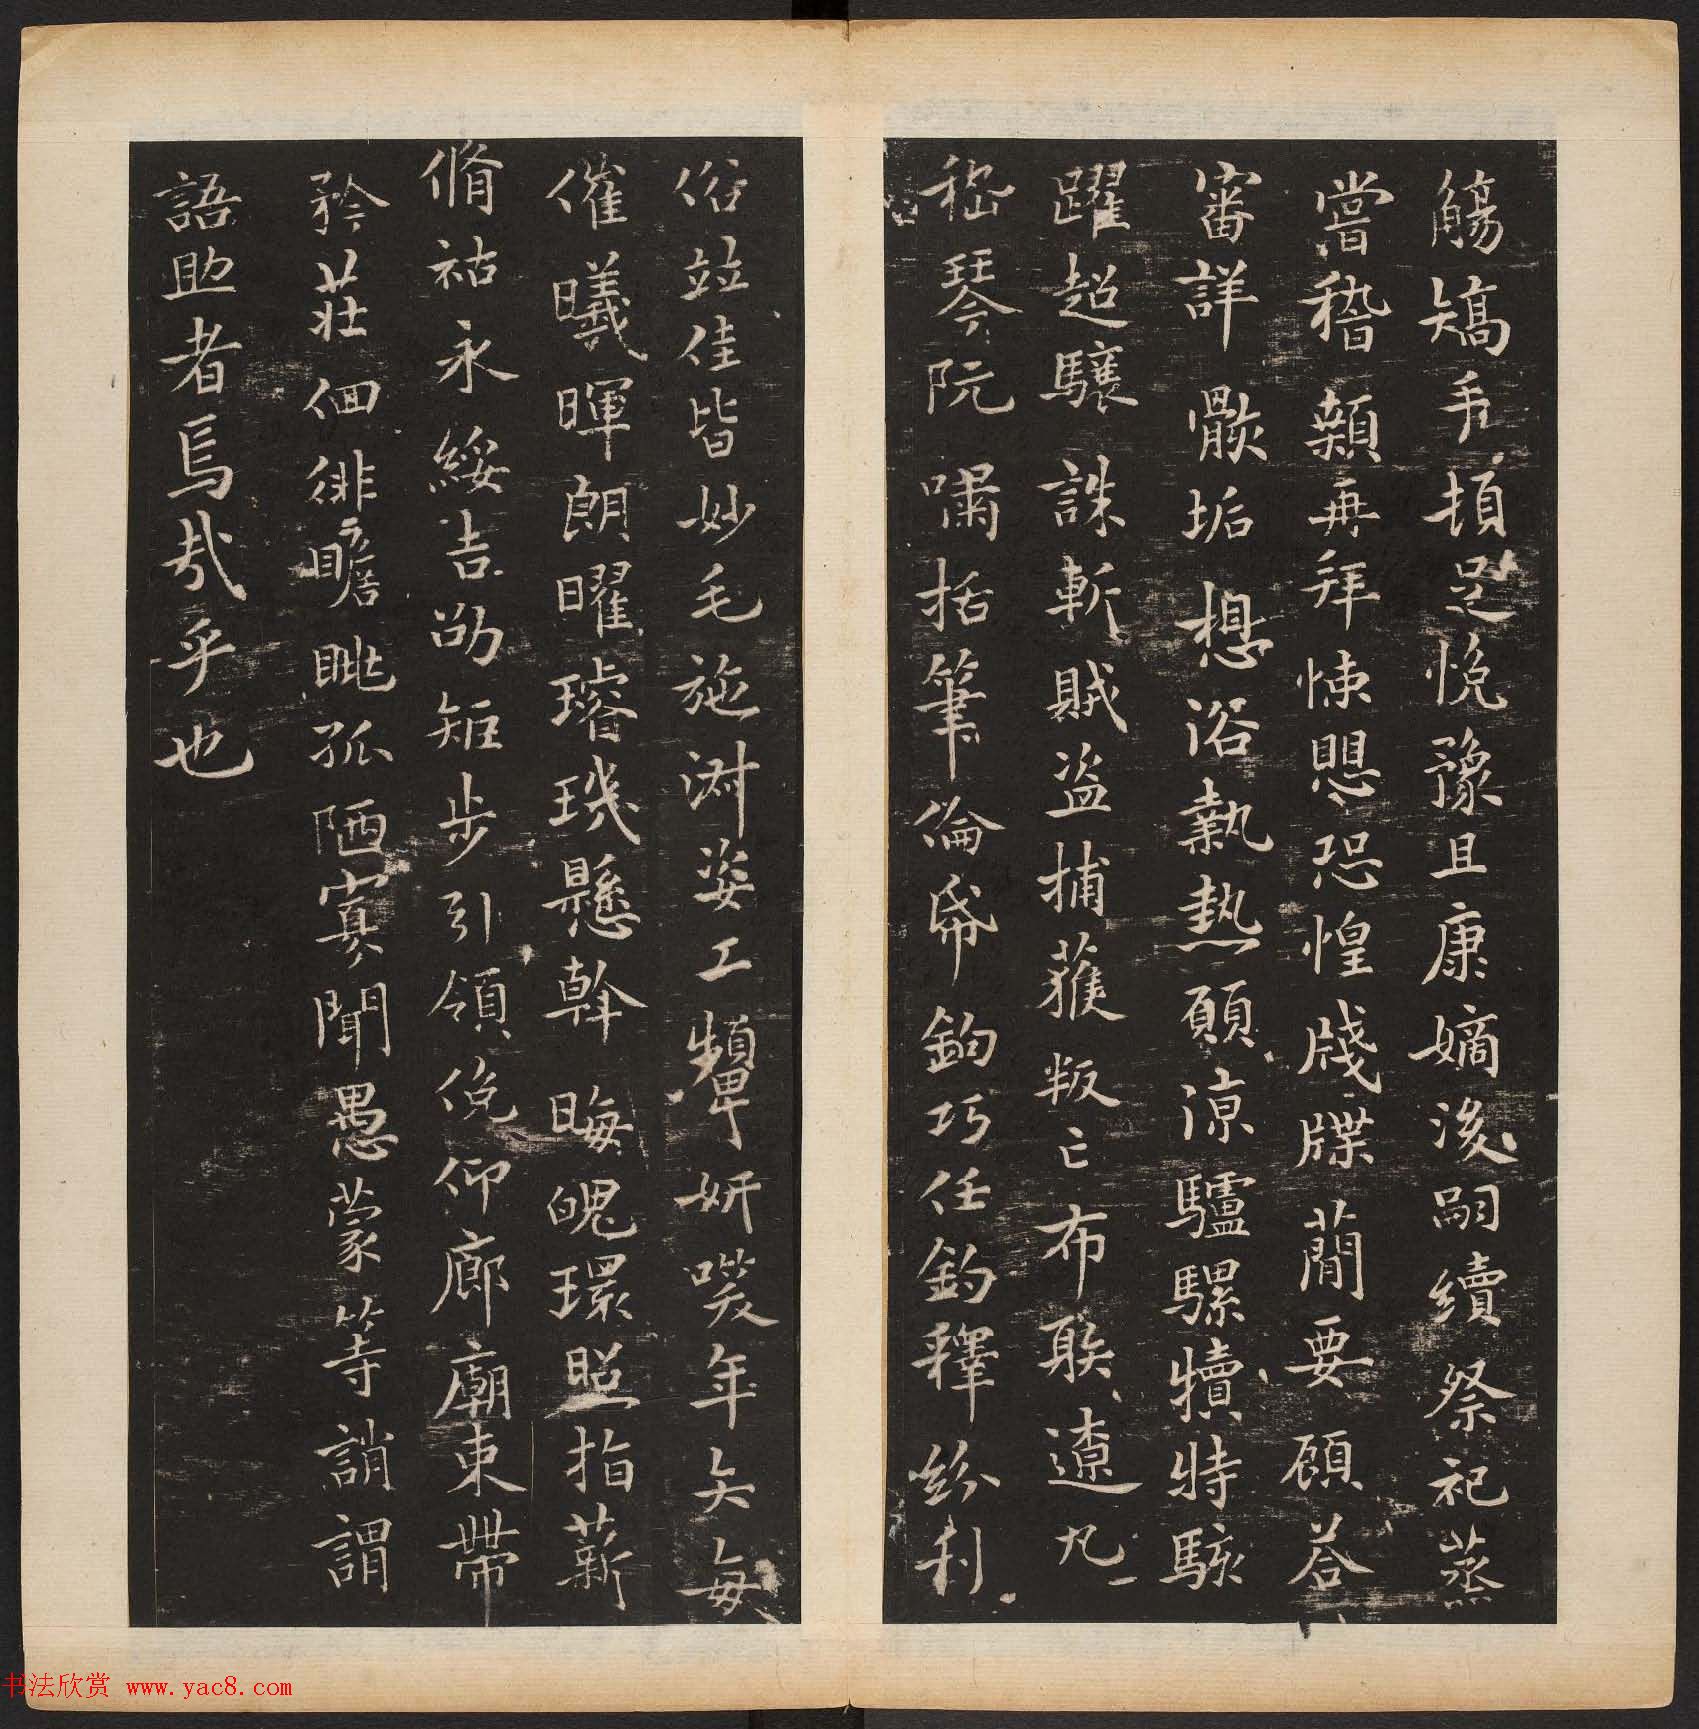 觴矯手頓足悅豫且康嫡後嗣續祭祀蒸
嘗稽顙再拜悚懼恐惶牋牒蕳要顧答
審詳骸垢想浴執熱願涼驢騾犢特駭
躍超驤誅斬賊盜捕獲叛亡布䠶遼丸
嵇琴阮嘯恬筆倫帋鈞巧任釣釋紛利
俗竝佳皆妙毛施淑姿工顰妍笑年矢每
催曦暉朗曜璿璣懸斡晦魄環照指薪
脩祜永綏吉劭矩步引領俛仰廊廟束帶
矜莊佪徘瞻眺孤陋寡聞愚蒙等誚謂
語助者焉哉乎也
书法欣赏 www.yac8.com